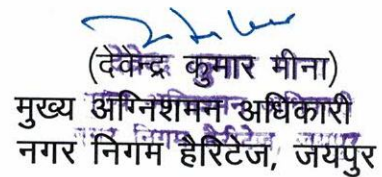 (देवेन्द्र कुमार मीना)
मुख्य अग्निशमन अधिकारी
नगर निगम हैरिटेज, जयपुर